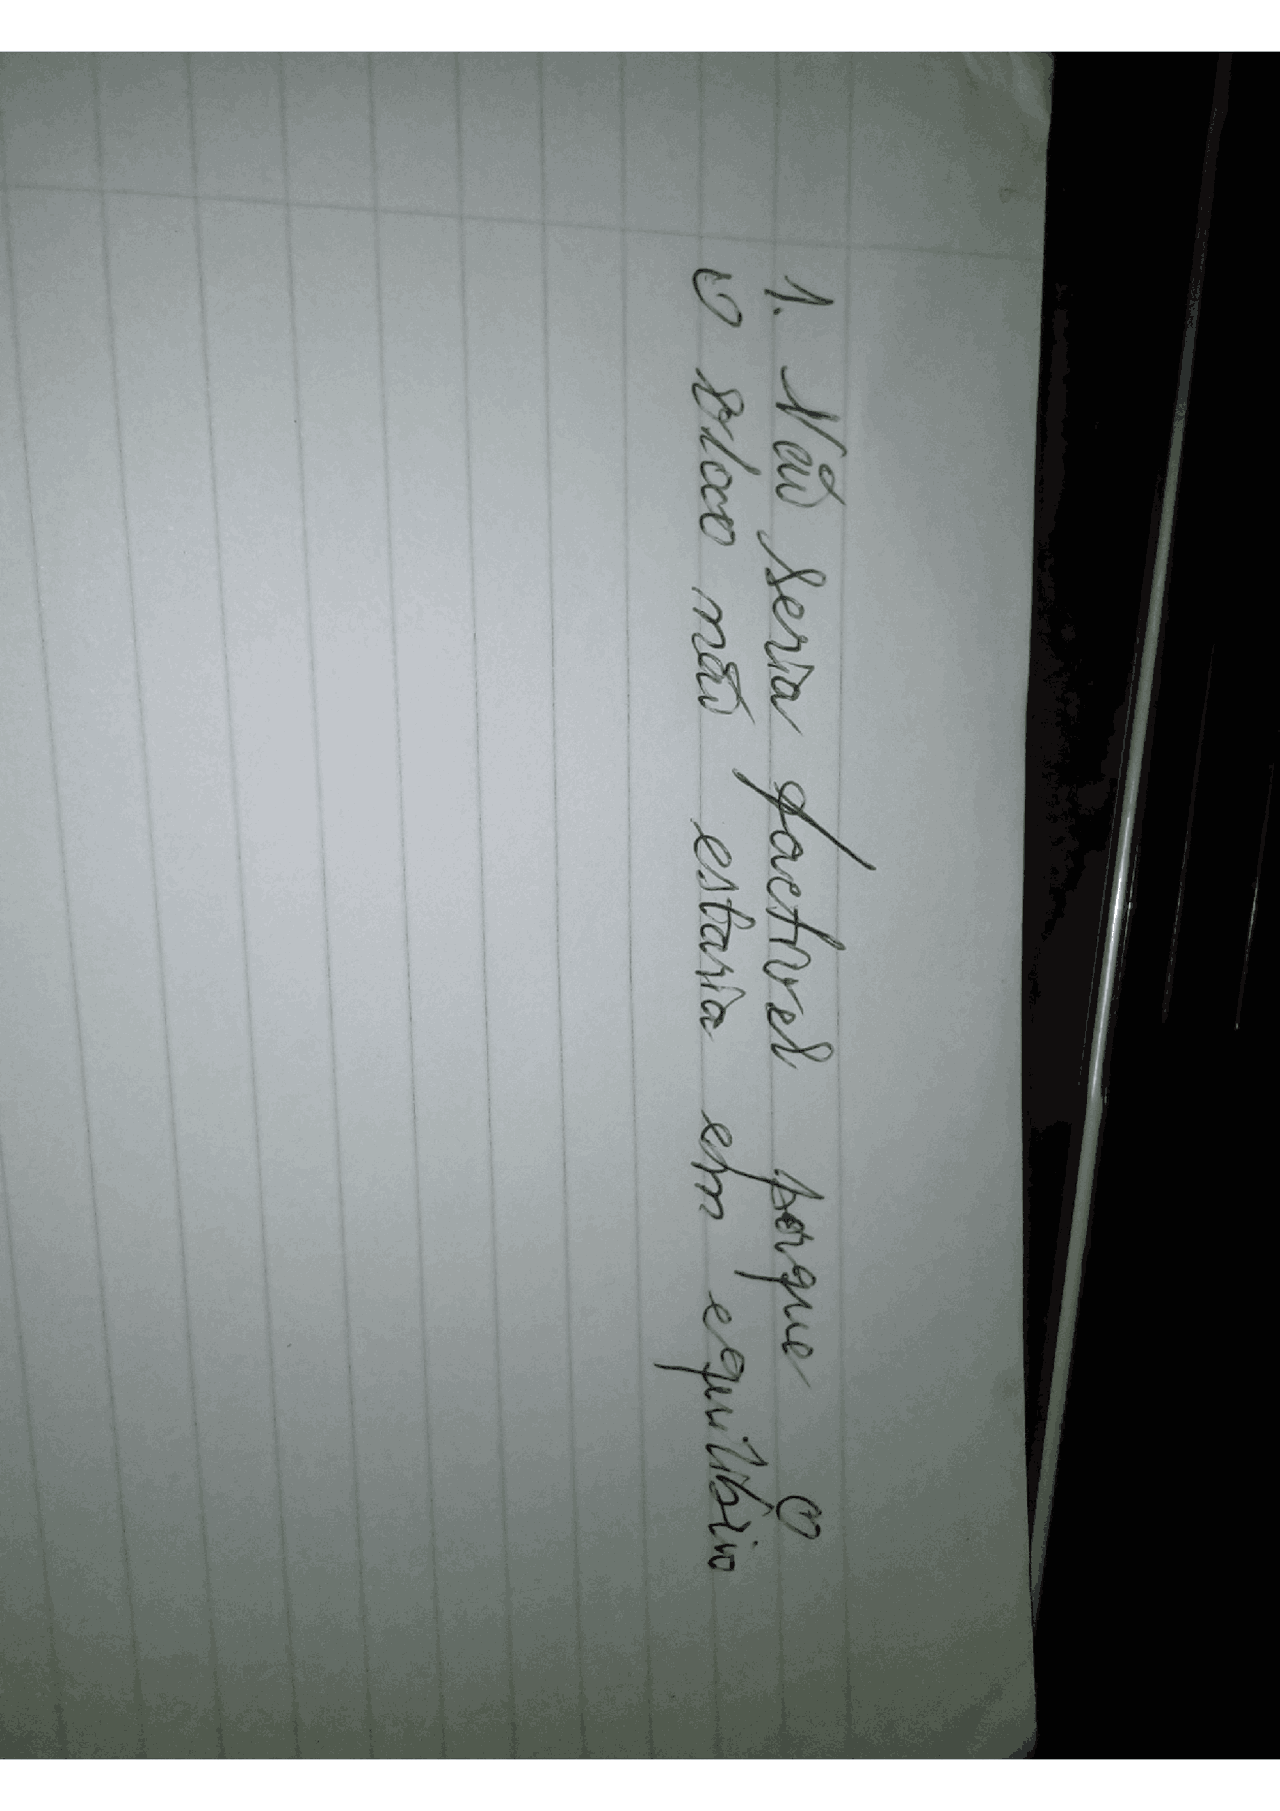 1. Não seria factível porque o
o bloco não estaria em equilíbrio